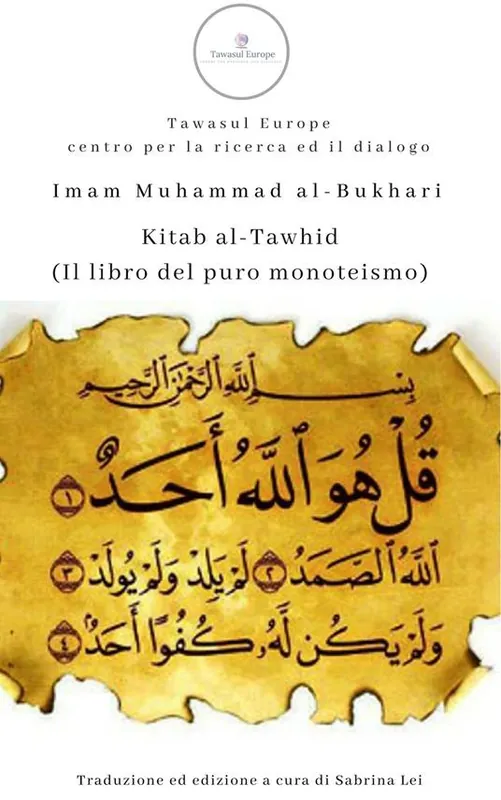 Tawasul Europe
Tawasul Europe
centro per la ricerca ed il dialogo
Imam Muhammad al-Bukhari
Kitab al-Tawhid
(Il libro del puro monoteismo)
بِسْمِ ٱللَّهِ ٱلرَّحْمَٰنِ ٱلرَّحِيمِ
قُلْ هُوَ ٱللَّهُ أَحَدٌ ١
ٱللَّهُ ٱلصَّمَدُ ٢ لَمْ يَلِدْ وَلَمْ يُولَدْ ٣
وَلَمْ يَكُن لَّهُۥ كُفُوًا أَحَدٌ ٤
Traduzione ed edizione a cura di Sabrina Lei